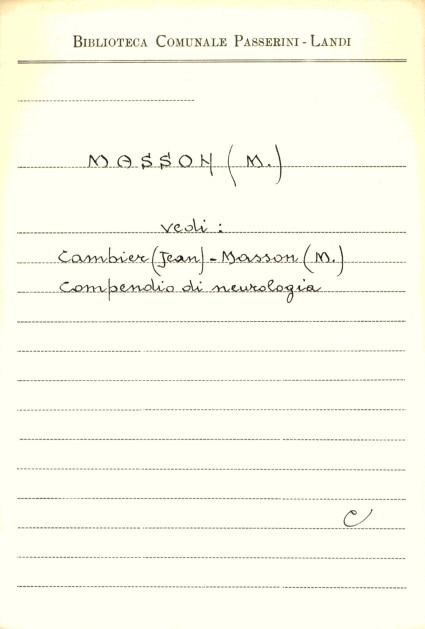 BIBLIOTECA COMUNALE PASSERINI - LANDI
MASSON (M.)
vedi :
Cambier (Jean) - Masson (M.)
Compendio di neurologia
C